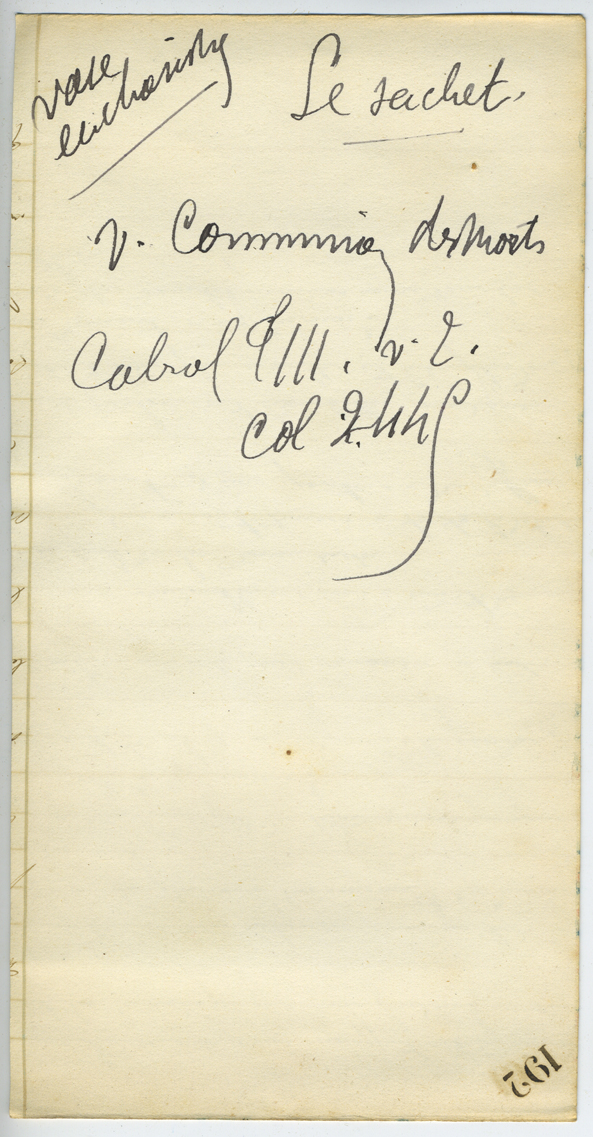 vase
eucharistiq
Le sachet.
v. Communion des Morts
Cabrol T III. v. 2.
col 2445
192